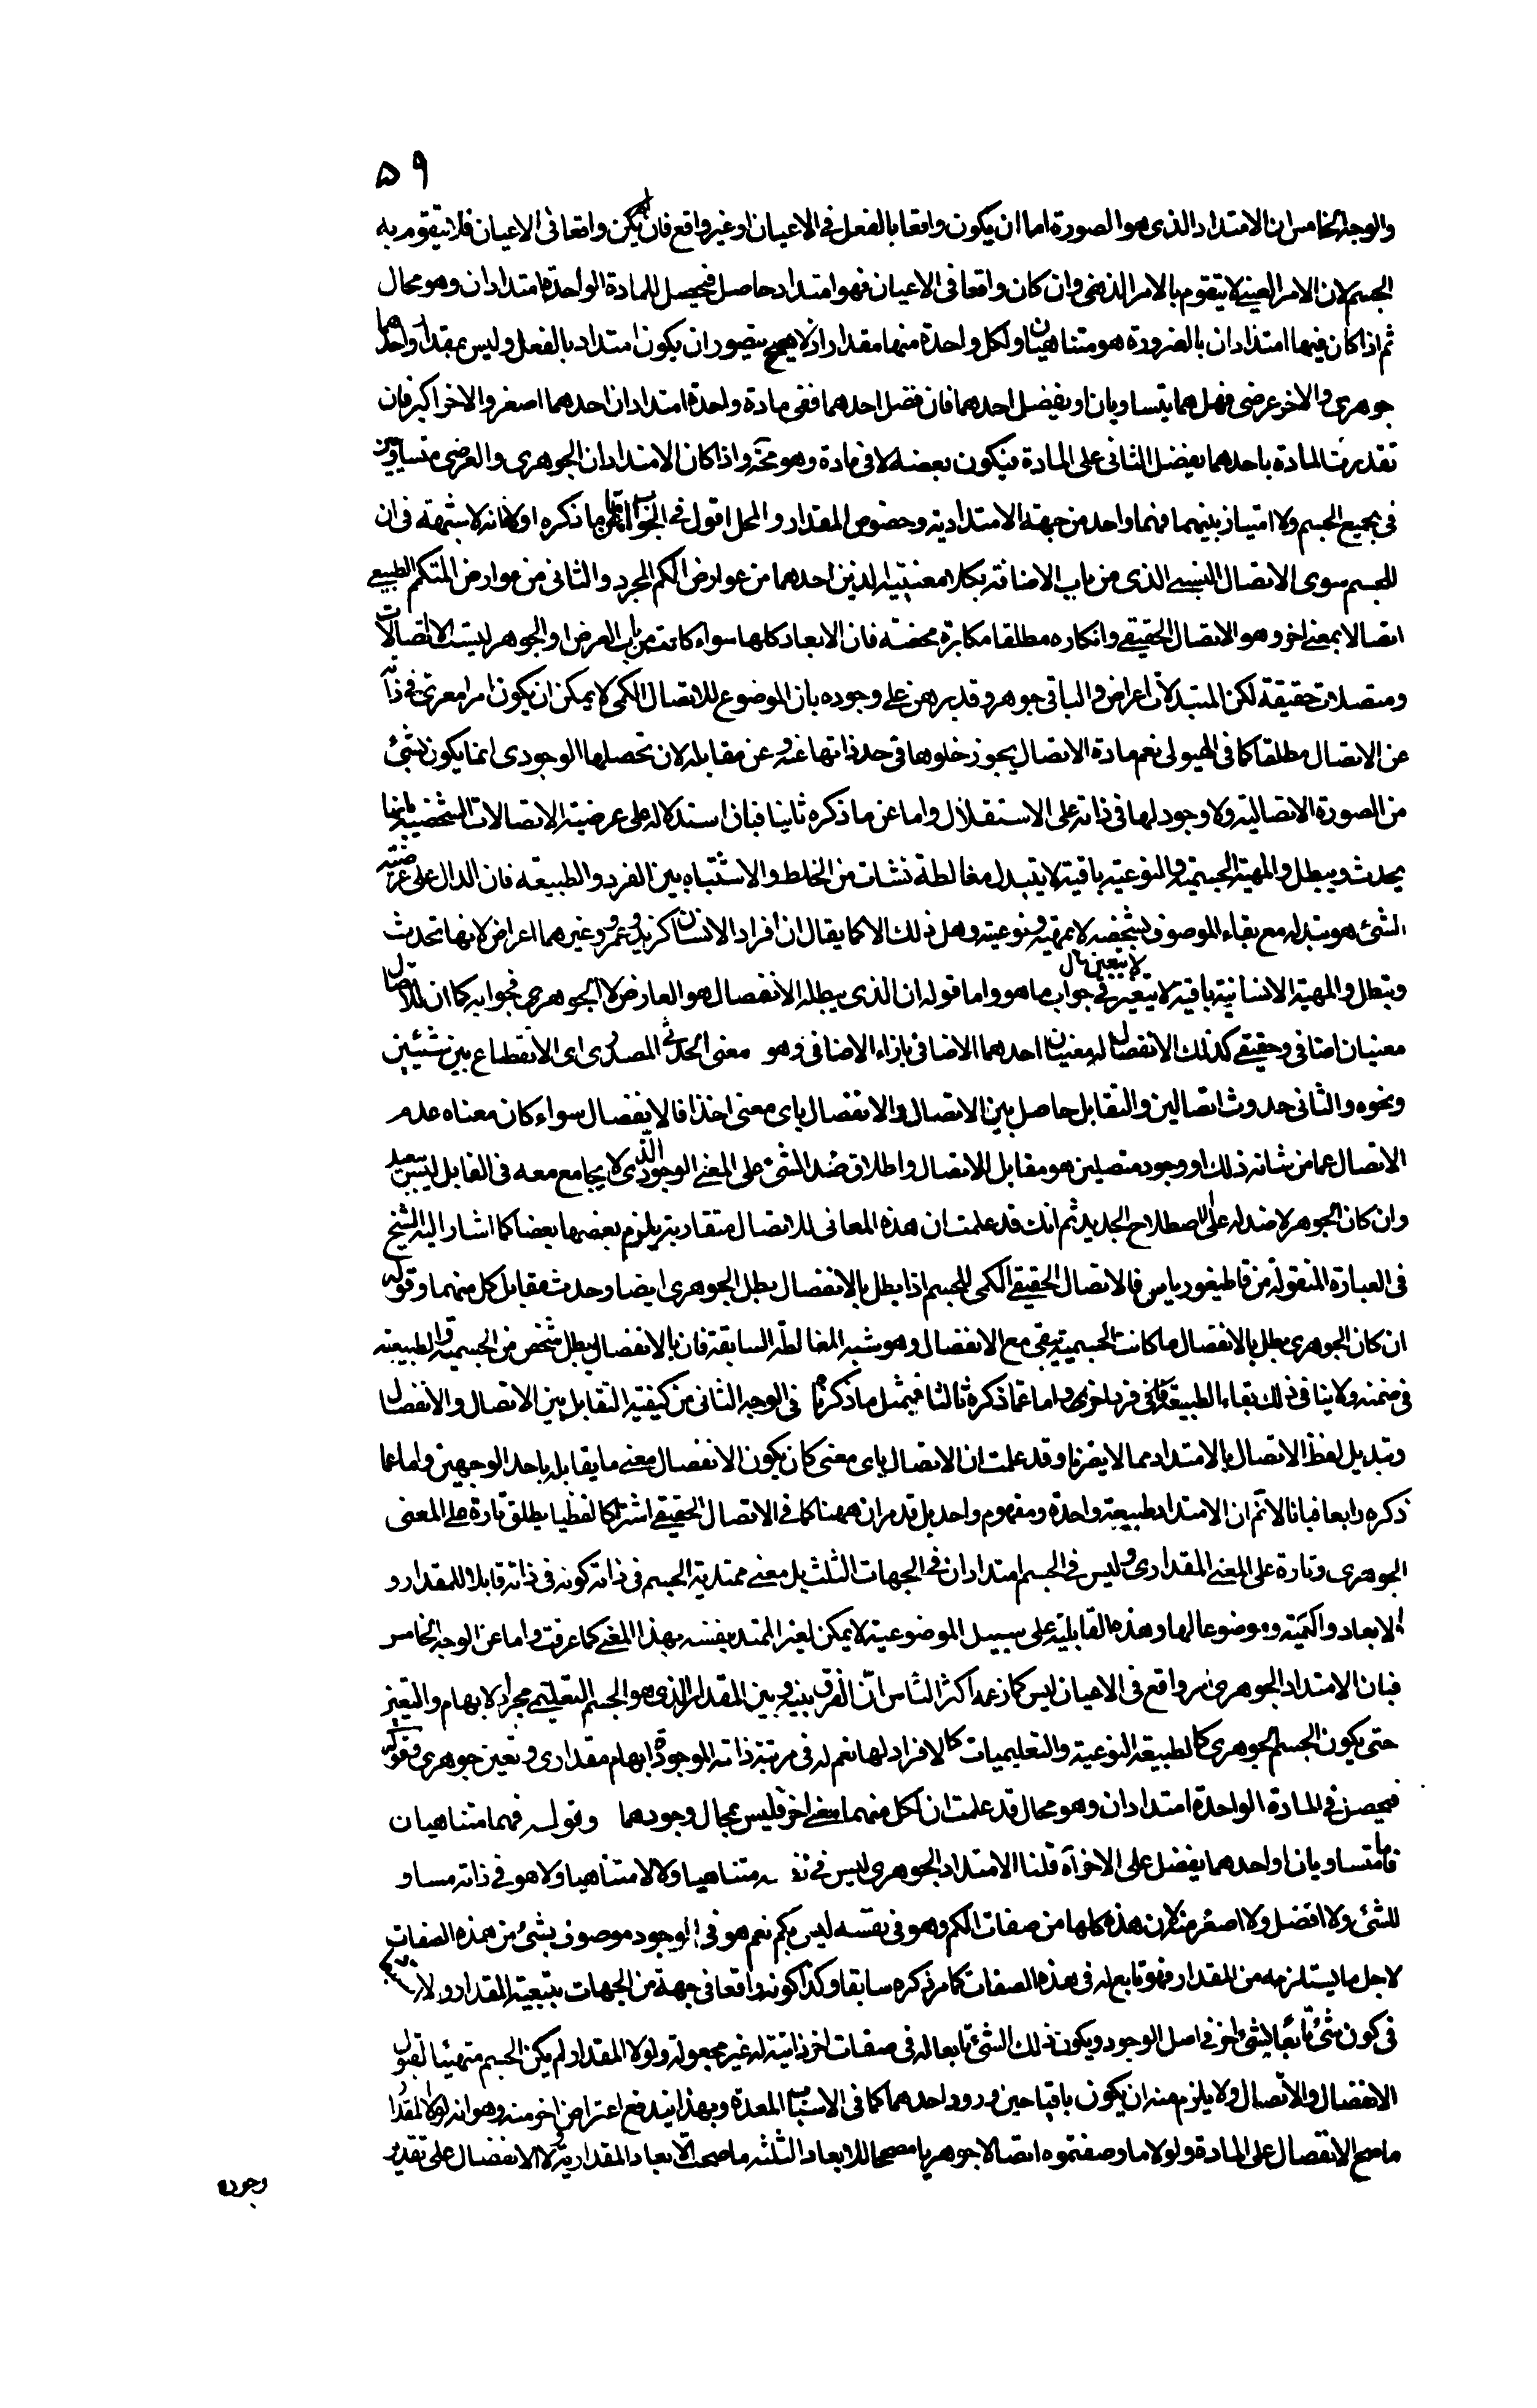 ٥٩
والوجه الخامس ان الامتداد الذى هو الصورة اما ان يكون واقعا بالفعل فى الاعيان او غير واقع فان لم يكن واقعا فى الاعيان فلا يتقوم به
الجسم لان الامر العينى لا يتقوم بالامر الذهنى وان كان واقعا فى الاعيان فهو امتداد حاصل فيحصل للمادة الواحدة امتدادان وهو محال
ثم اذا كان فيها امتدادان بالضرورة هو متناهيان ولكل واحدة منها مقدار اذ لا يتصور ان يكون امتداد بالفعل وليس بمقدار واحدهما
جوهرى والاخر عرضى فهل هما يتساويان او يفضل احدهما فان فضل احدهما ففى مادة واحدة امتدادان احدهما اصغر والاخر اكبر فان
تقدرت المادة باحدهما يفضل الثانى على المادة فيكون بعضه لا فى مادة وهو مح واذا كان الامتدادان الجوهرى والعرضى متساويين
فى جميع الجسم ولا امتياز بينهما فهما واحد من جهة الامتدادية وخصوص المقدار والمحل اقول فى الجواب اما عن ما ذكره اولا فانه لا شبهة فى ان
للجسم سوى الاتصال النسبى الذى من باب الاضافة بكلا معنييه الذين احدهما من عوارض الكم المجرد والثانى من عوارض المتكم الطبيعى
اتصالا بمعنى اخر وهو الاتصال الحقيقى وانكاره مطلقا مكابرة محضة فان الابعاد كلها سواء كانت من باب العرض او الجوهر ليست الا اتصالات
ومتصلات حقيقة لكن المتبدلات اعراض والباقى جوهر وقد برهن على وجوده بان الموضوع للاتصال الكمى لا يمكن ان يكون امرا معرى فى ذاته
عن الاتصال مطلقا كما فى الهيولى نعم مادة الاتصال يجوز خلوها فى حد ذاتها عنه وعن مقابله لان تحصلها الوجودى انما يكون بشئ
من الصورة الاتصالية ولا وجود لها فى ذاته على الاستقلال واما عن ما ذكره ثانيا فبان استدلاله على عرضية الاتصالات الشخصية بانها
يحدث ويبطل والمهية الجسمية والنوعية باقية لا يتبدل مغالطة نشات من الخلط والاشتباه بين الفرد والطبيعة فان الدال على عرضية
الشئ هو تبدله مع بقاء الموصوف بشخصه لا بمهيته ونوعيته وهل ذلك الا كما يقال ان افراد الانسان كزيد وعمرو وغيرهما اعراض لانها تحدث
وتبطل والمهية الانسانية باقية لا يتغير فى جواب ما هو واما قوله ان الذى يبطله الانفصال هو العارض لا الجوهرى فجوابه كما ان للاتصال
معنيان اضافى وحقيقى كذلك الانفصال له معنيان احدهما الاضافى بازاء الاضافى وهو معنى الحدثى المصدرى اى الانقطاع بين شيئين
ونحوه والثانى حدوث اتصالين والتقابل حاصل بين الاتصال والانفصال باى معنى اخذا فالانفصال سواء كان معناه عدم
الاتصال عما من شانه ذلك او وجود متصلين هو مقابل للاتصال واطلاق ضد الشئ على المعنى الوجودى الذى لا يجامع معه فى القابل ليس ببعيد
وان كان الجوهر لا ضد له على الاصطلاح الجديد ثم انك قد علمت ان هذه المعانى للاتصال متقاربة يلزم بعضها بعضا كما اشار اليه الشيخ
فى العبارة المنقولة من قاطيغورياس فالاتصال الحقيقى الكمى للجسم اذا بطل بالانفصال بطل الجوهرى ايضا وحدث مقابل كل منهما وقوله
ان كان الجوهرى بطل بالانفصال ما كانت الجسمية تبقى مع الانفصال وهو شبه المغالطة السابقة فان بالانفصال يبطل شخص من الجسمية والطبيعة
فى ضمنه ولا ينافى ذلك بقاء الطبيعة فى فرد اخر واما عما ذكره ثالثا فبمثل ما ذكرناه فى الوجه الثانى من كيفية التقابل بين الاتصال والانفصال
وتبديل لفظ الاتصال بالامتداد مما لا يضرنا وقد علمت ان الاتصال باى معنى كان يكون الانفصال معنى ما يقابله باحد الوجهين واما عما
ذكره رابعا فبانا لا نم ان الامتداد طبيعة واحدة ومفهوم واحد بل قد مر ان ههنا كما فى الاتصال الحقيقى اشتراكا لفظيا يطلق تارة على المعنى
الجوهرى وتارة على المعنى المقدارى وليس فى الجسم امتدادان فى الجهات الثلث بل معنى ممتدية الجسم فى ذاته كونه فى ذاته قابلا للمقدار و
الابعاد والكمية وموضوعا لها وهذه القابلية على سبيل الموضوعية لا يمكن لغير الممتد بنفسه بهذا المعنى كما عرفت واما عن الوجه الخامس
فبان الامتداد الجوهرى امر واقع فى الاعيان ليس كما زعمه اكثر الناس ان الفرق بينه وبين المقدار الذى هو الجسم التعليمى مجرد الابهام والتعين
حتى يكون الجسم الجوهرى كالطبيعة النوعية والتعليميات كالافراد لها نعم له فى مرتبة ذاته الموجودة ابهام مقدارى وتعين جوهرى وقوله
فيحصل فى المادة الواحدة امتدادان وهو محال قد علمت ان لكل منهما معنى اخر فليس بمحال وجودهما وقوله فهما متناهيان
فاما متساويان او احدهما يفضل على الاخر آه قلنا الامتداد الجوهرى ليس فى ذاته متناهيا ولا لامتناهيا ولا هو فى ذاته مساو
للشئ ولا افضل ولا اصغر منه لان هذه كلها من صفات الكم وهو فى نفسه ليس بكم نعم هو فى الوجود موصوف بشئ من هذه الصفات
لاجل ما يستلزمه من المقدار فهو تابع له فى هذه الصفات كما مر ذكره سابقا وكذا كونه واقعا فى جهة من الجهات بتبعية المقدار ولا
فى كون شئ تابعا لشئ اخر فى اصل الوجود ويكون ذلك الشئ تابعا له فى صفات اخر ذاتية له غير مجعولة ولولا المقدار لم يكن الجسم متهيئا لقبول
الانفصال والاتصال ولا يلزم منه ان يكون باقيا حين ورود احدهما كما فى الاسباب المعدة وبهذا يندفع اعتراض اخر منه وهو انه لولا المقدار
ما صح الانفصال على المادة ولولا ما وصفتموه اتصالا جوهريا مصححا للابعاد الثلثه ما صحت الابعاد المقدارية ولا الانفصال على تقدير
وجوده